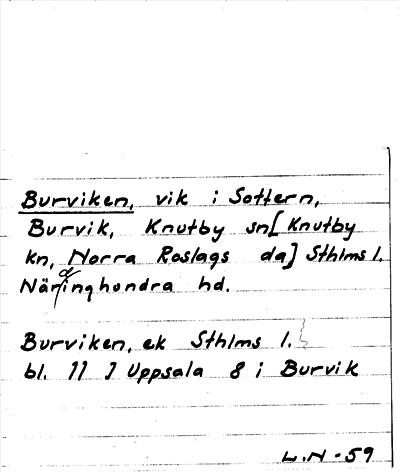 Burviken, vik i Sottern,
Burvik, Knutby sn [Knutby
kn, Norra Roslags da] Sthlms l.
Närdinghundra hd.
Burviken, ek Sthlms l.
bl. 11 J Uppsala 8 i Burvik
L.N - 59